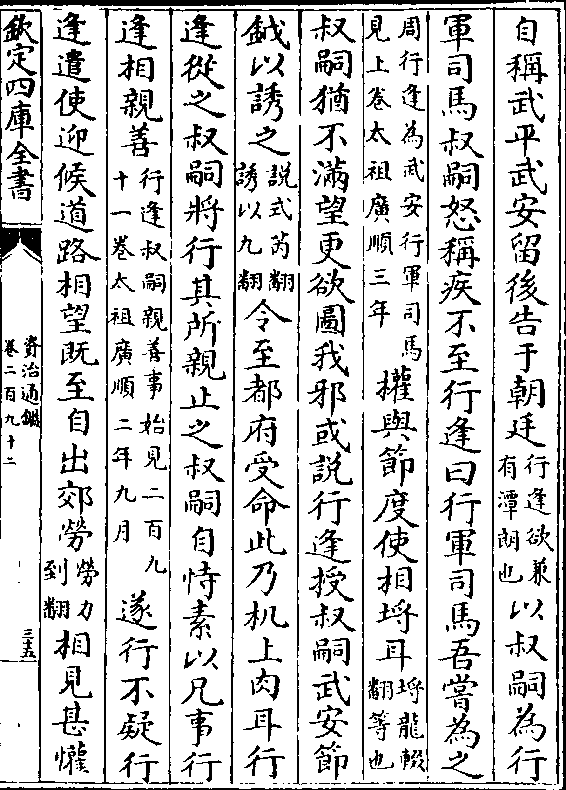 自稱武平武安留後告于朝廷行逢欲兼有潭朗也以叔嗣為行
軍司馬叔嗣怒稱疾不至行逢曰行軍司馬吾嘗為之
周行逢為武安行軍司馬見上卷太祖廣順三年權與節度使相埒耳埒龍輟翻等也
叔嗣猶不滿望更欲圖我邪或說行逢授叔嗣武安節
鉞以誘之說式芮翻誘以九翻令至都府受命此乃机上肉耳行
逢從之叔嗣將行其所親止之叔嗣自恃素以凡事行
逢相親善行逢叔嗣親善事始見二百九十一卷太祖廣順二年九月遂行不疑行
逢遣使迎候道路相望既至自出郊勞勞力到翻相見甚懽
欽定四庫全書
資治通鑑
卷二百九十二
三十五